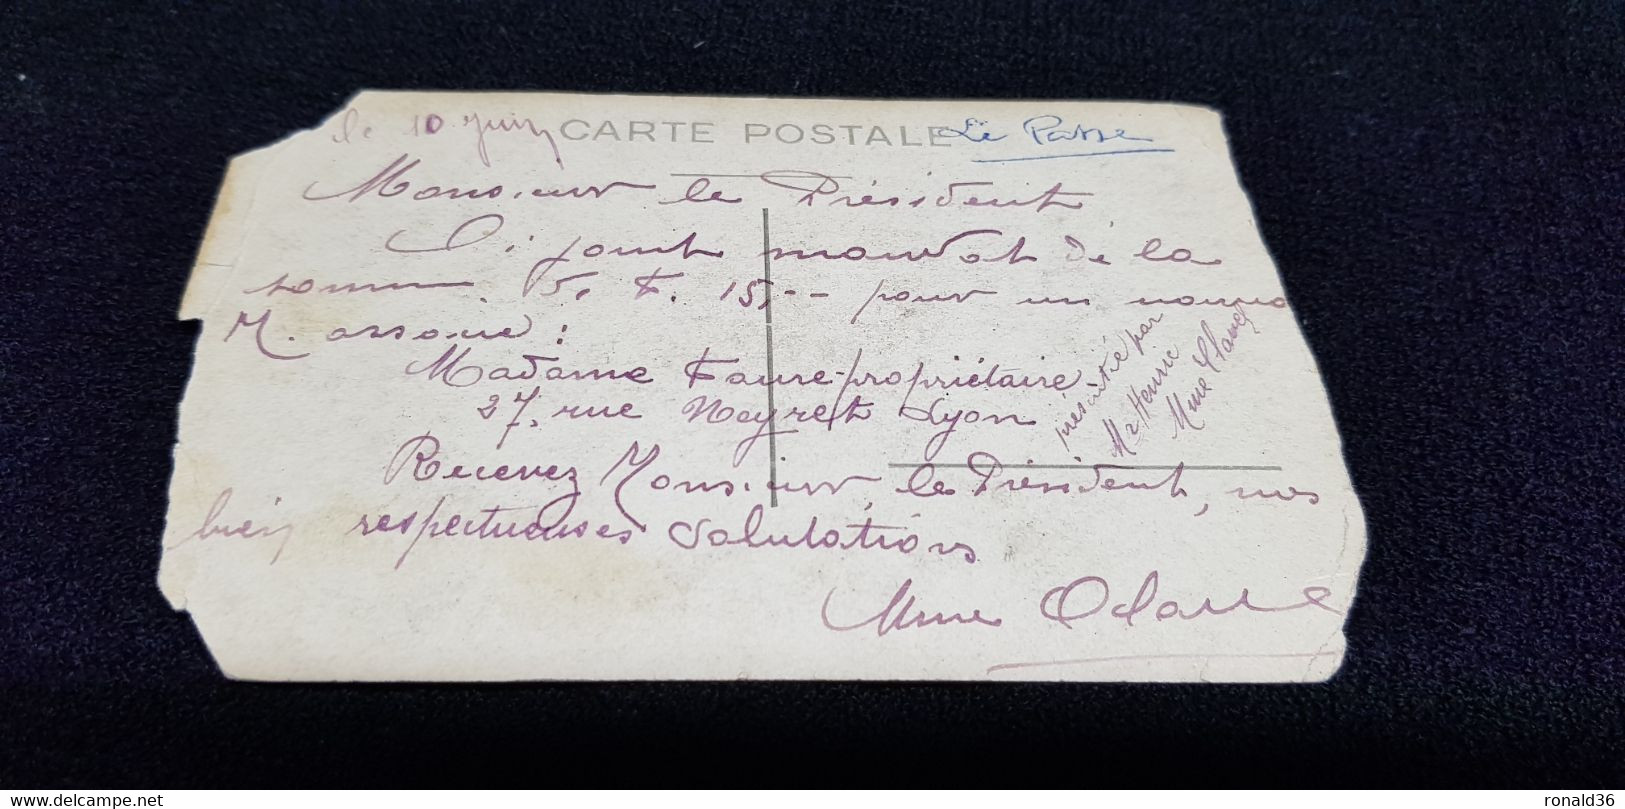 le 10 juin
CARTE POSTALE
Le Passe
Monsieur le Président
Ci joint mandat de la
somme 5. F. 15,-- pour un nouveau
M. associé :
Madame Faure-propriétaire-
27, rue Neyret Lyon
présenté par
Mr Henrie
Mme
Recevez Monsieur, le Président, nos
bien respectueuses salutations
Mme
ronald36